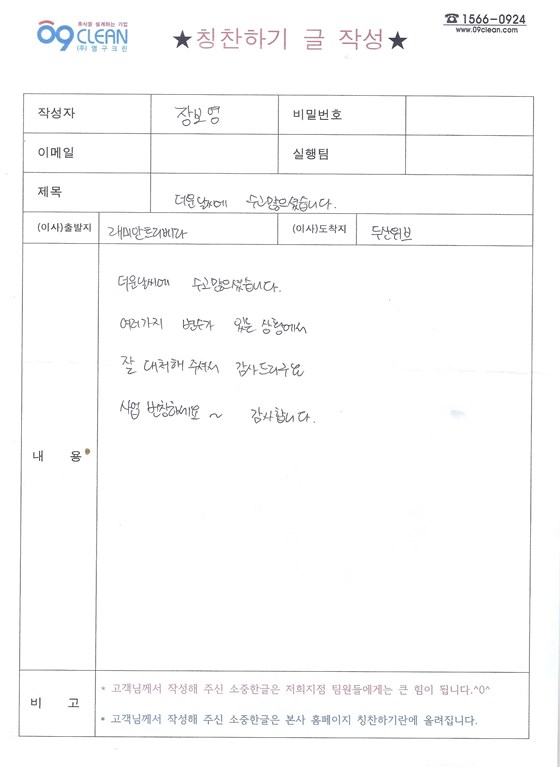 휴식을 설계하는 기업
09 CLEAN
(주)영구크린
★칭찬하기 글 작성★
☎ 1566-0924
www.09clean.com
작성자 장보영 비밀번호
이메일 실행팀
제목 더운날씨에 수고많으셨습니다.
(이사)출발지 래미안트리베라 (이사)도착지 두산위브
더운날씨에 수고많으셨습니다.
여러가지 변수가 있는 상황에서
잘 대처해 주셔서 감사드리구요
사업 번창하세요~ 감사합니다.
내 용
비 고
* 고객님께서 작성해 주신 소중한글은 저희지점 팀원들에게는 큰 힘이 됩니다.^0^
* 고객님께서 작성해 주신 소중한글은 본사 홈페이지 칭찬하기란에 올려집니다.